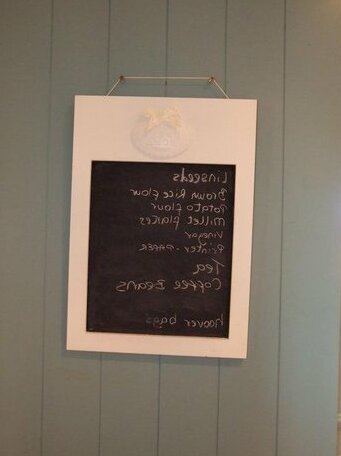 Linseeds
Brown Rice Flour
Potato Flour
Millet flakes
Vinegar
Printer - PAPER
Tea
Coffee Beans
Hoover bags